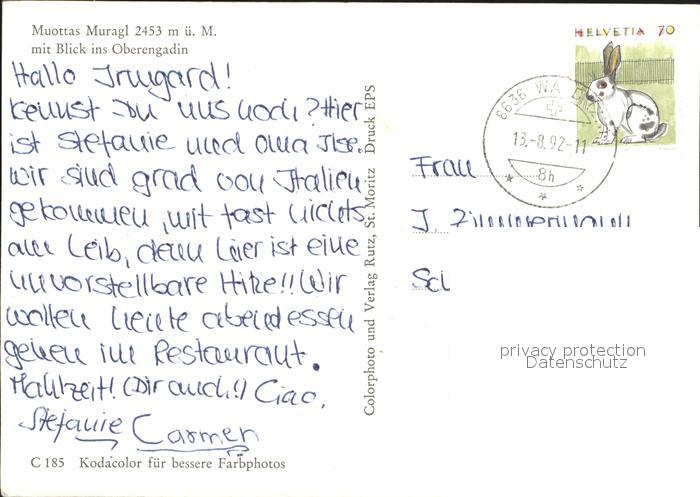 Muottas Muragl 2453 m ü. M.
mit Blick ins Oberengadin
Hallo Irmgard!
kennst du uns noch? Hier
ist Stefanie und Oma Ilse.
Wir sind grad von Italien
gekommen, mit fast nichts
am Leib, denn hier ist eine
unvorstellbare Hitze!! Wir
wollen heute abend essen
gehen im Restaurant.
Mahlzeit! (Dir auch!) Ciao,
Stefanie Carmen
C 185 Kodacolor für bessere Farbphotos
Colorphoto und Verlag Rutz, St. Moritz Druck EPS
HELVETIA 70
8636 WA
13.-8.92-11
8h
Frau
I. Zimmermann
Sch
privacy protection
Datenschutz